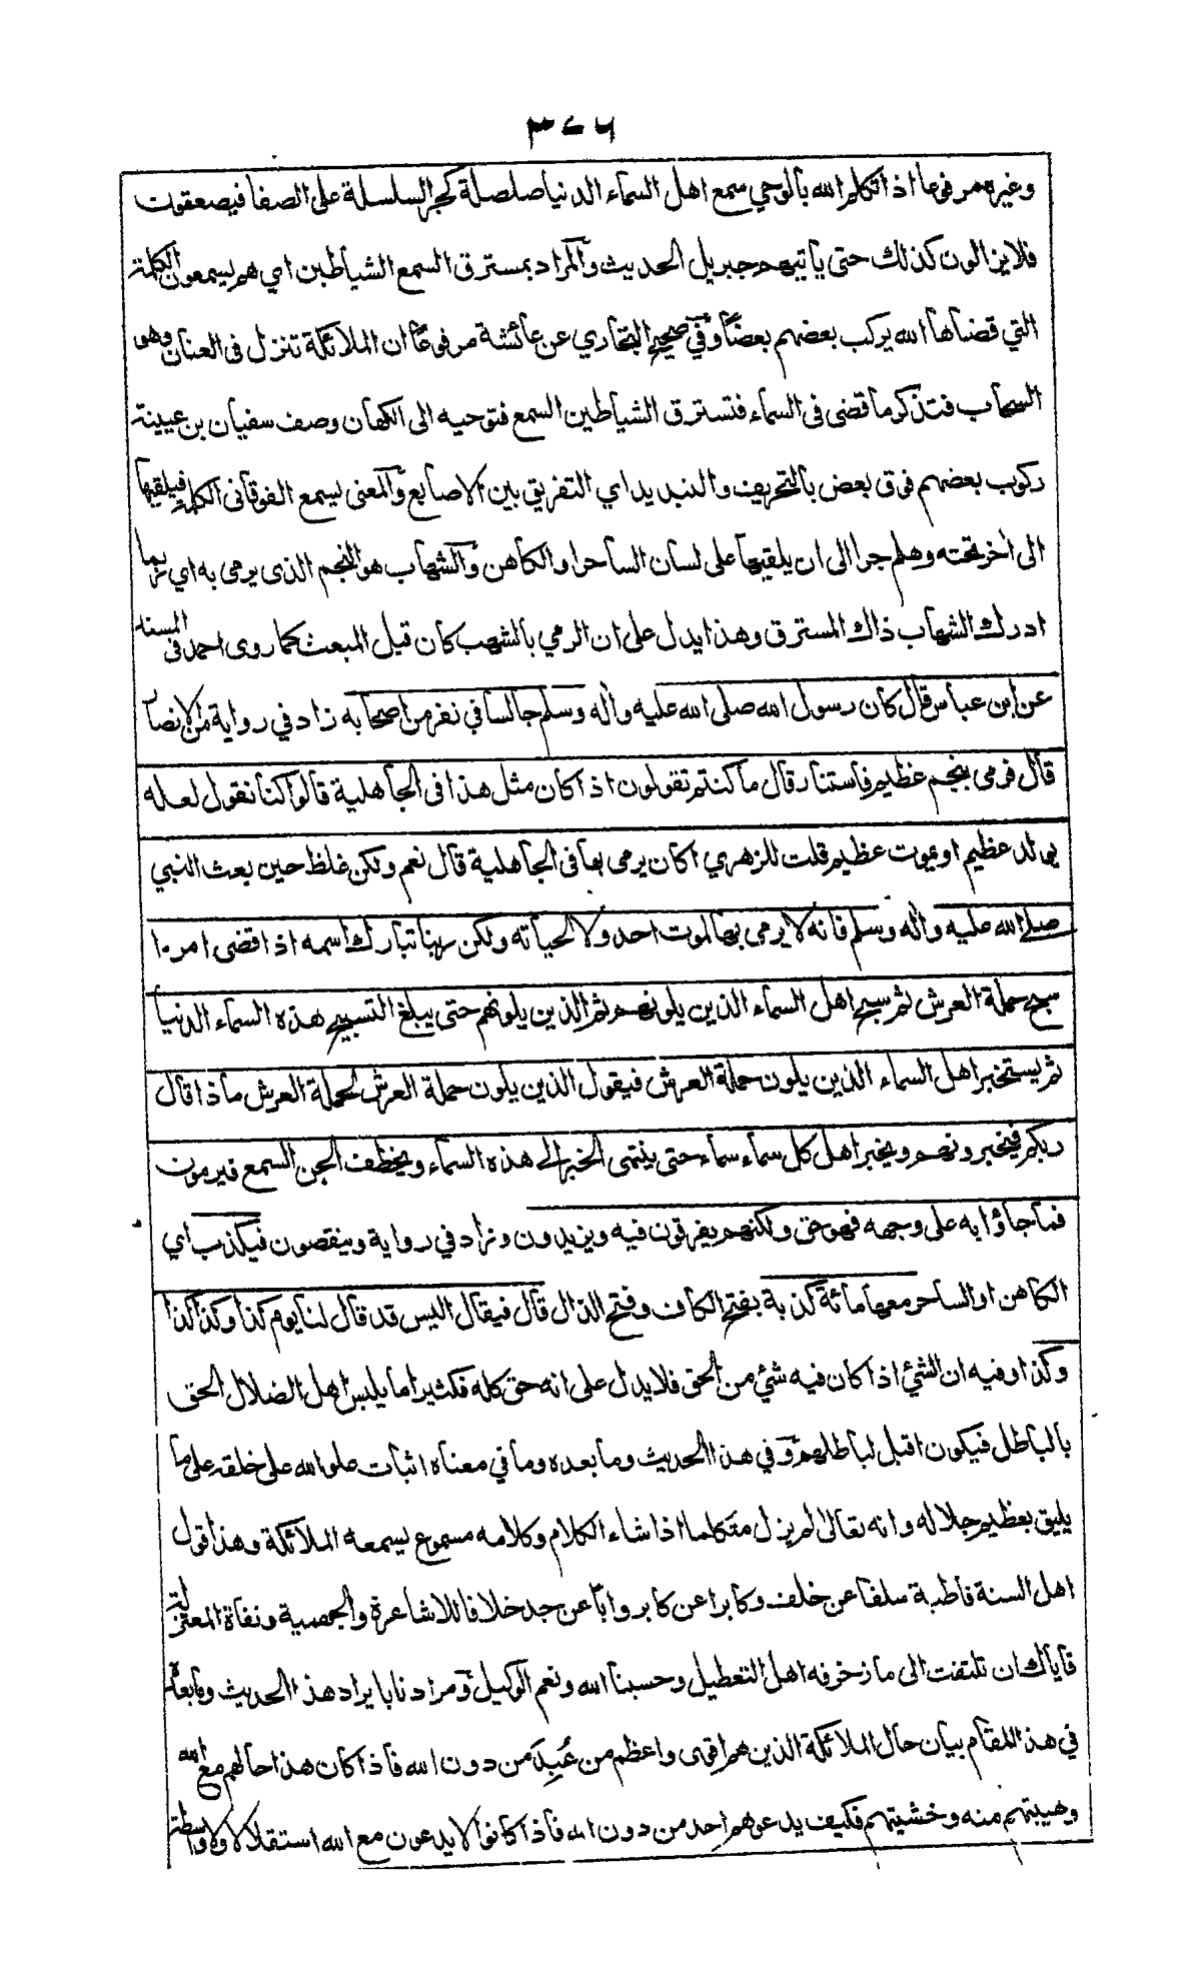 ٣٧٦
وغيرهم مرفوعا اذا تكلم الله بالوحي سمع اهل السماء الدنيا صلصلة كجر السلسلة على الصفا فيصعقون
فلا يزالون كذلك حتى ياتيهم جبريل الحديث والمراد بمسترق السمع الشياطين اي هم يسمعون الكلمة
التي قضاها الله يركب بعضهم بعضا وفي صحيح البخاري عن عائشة مرفوعا ان الملائكة تنزل فى العنان وهو
السحاب فتذكر ما قضى فى السماء فتسترق الشياطين السمع فتوحيه الى الكهان وصف سفيان بن عيينة
ركوب بعضهم فوق بعض بالتحريف والتبديد اي التفريق بين الاصابع والمعنى يسمع الفوقانى الكلمة فيلقيها
الى اخر تحته وهلم جرا الى ان يلقيها على لسان الساحر او الكاهن والشهاب هو النجم الذى يرمى به اي ربما
ادرك الشهاب ذاك المسترق وهذا يدل على ان الرمي بالشهب كان قبل المبعث كما روى احمد فى المسند
عن ابن عباس قال كان رسول الله صلى الله عليه واله وسلم جالسا في نفر من اصحابه زاد في رواية من الانصار
قال فرمى بنجم عظيم فاستنار قال ما كنتم تقولون اذا كان مثل هذا فى الجاهلية قالوا كنا نقول لعله
يولد عظيم او يموت عظيم قلت للزهري اكان يرمى بها فى الجاهلية قال نعم ولكن غلظ حين بعث النبي
صلى الله عليه واله وسلم فانه لا يرمى بها لموت احد ولا لحياته ولكن ربنا تبارك اسمه اذا قضى امرا
سبح حملة العرش ثم سبح اهل السماء الذين يلونهم ثم الذين يلونهم حتى يبلغ التسبيح هذه السماء الدنيا
ثم يستخبر اهل السماء الذين يلون حملة العرش فيقول الذين يلون حملة العرش لحملة العرش ماذا قال
ربكم فيخبرونهم ويخبر اهل كل سماء سماء حتى ينتهى الخبر الى هذه السماء ويخطف الجن السمع فيرمون
فما جاؤا به على وجهه فهو حق ولكنهم يفرقون فيه ويزيدون وزاد في رواية وينقصون فيكذب اي
الكاهن او الساحر معها مائة كذبة بفتح الكاف وفتح الذال قال فيقال اليس قد قال لنا يوم كذا وكذا كذا
وكذا وفيه ان الشئ اذا كان فيه شئ من الحق فلا يدل على انه حق كله فكثيرا ما يلبس اهل الضلال الحق
بالباطل فيكون اقبل لباطلهم وفي هذا الحديث وما بعده وما في معناه اثبات علو الله على خلقه على ما
يليق بعظيم جلاله وانه تعالى لم يزل متكلما اذا شاء الكلام وكلامه مسموع يسمعه الملائكة وهذا قول
اهل السنة قاطبة سلفا عن خلف وكابرا عن كابر وابا عن جد خلافا للاشاعرة والجهمية ونفاة المعتزلة
فاياك ان تلتفت الى ما زخرفه اهل التعطيل وحسبنا الله ونعم الوكيل ومرادنا بايراد هذا الحديث وما بعده
في هذا المقام بيان حال الملائكة الذين هم اقوى واعظم من عُبِدَ من دون الله فاذا كان هذا حالهم مع الله
وهيبتهم منه وخشيتهم فكيف يدعوهم احد من دون الله فاذا كانوا لا يدعون مع الله استقلالا ولا واسطة